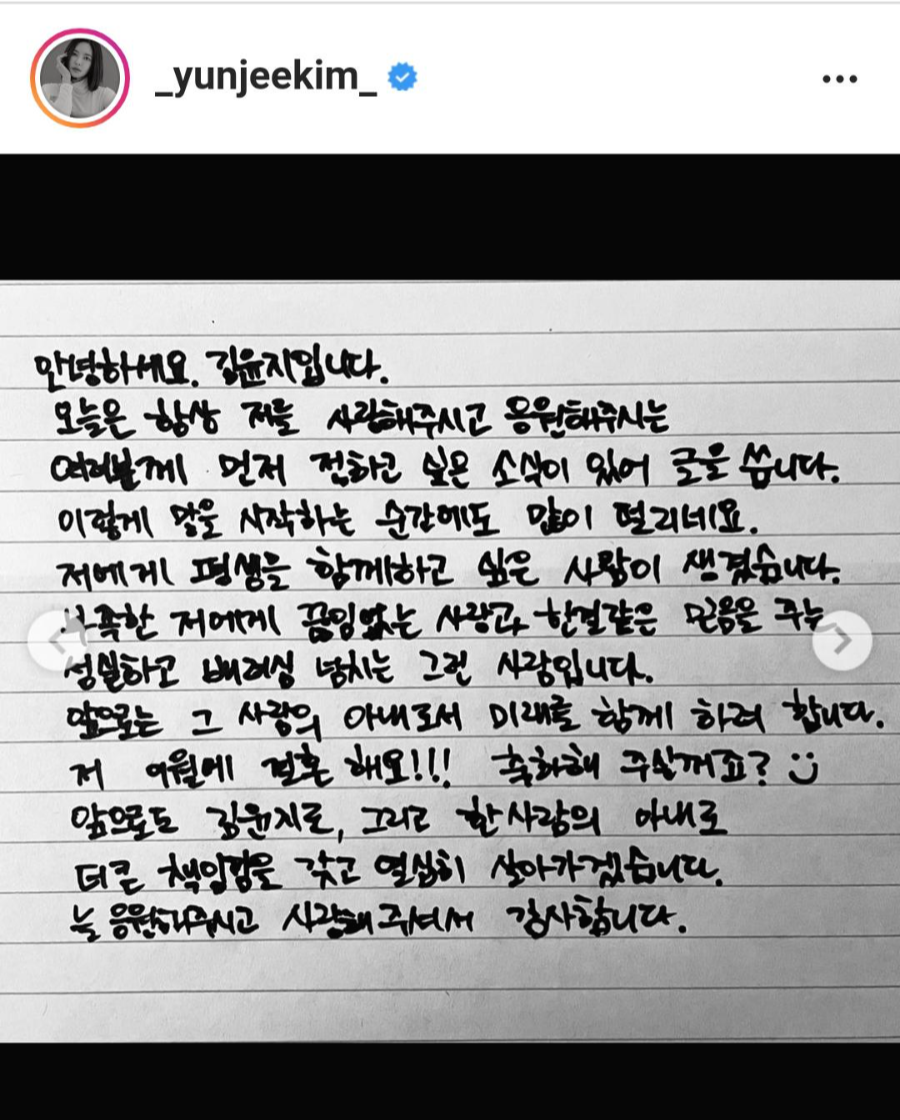 _yunjeekim_
안녕하세요. 김윤지입니다.
오늘은 항상 저를 사랑해주시고 응원해주시는
여러분께 먼저 전하고 싶은 소식이 있어 글을 씁니다.
이렇게 말을 시작하는 순간에도 많이 떨리네요.
저에게 평생을 함께하고 싶은 사람이 생겼습니다.
저에게 끊임없는 사랑과 한결같은 믿음을 주는
성실하고 배려심 넘치는 그런 사람입니다.
앞으로는 그 사람의 아내로서 미래를 함께 하려 합니다.
저 9월에 결혼 해요!!! 축하해 주실꺼죠?
앞으로도 김윤지로, 그리고 한 사람의 아내로
더 큰 책임감을 갖고 열심히 살아가겠습니다.
늘 응원해주시고 사랑해 주셔서 감사합니다.